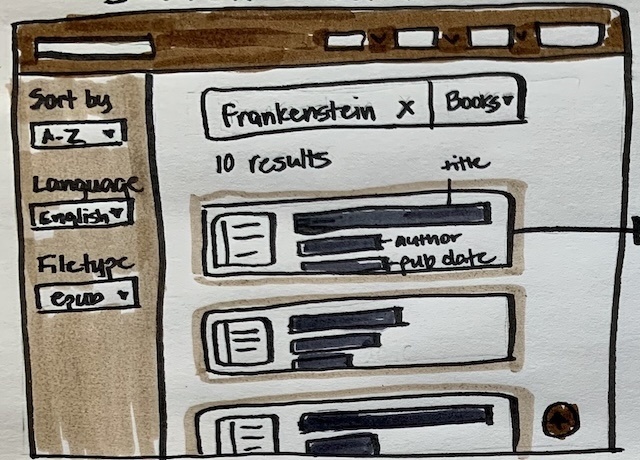 Sort by
A-Z
Language
English
Filetype
epub
Frankenstein X Books
10 results
title
author
pub date